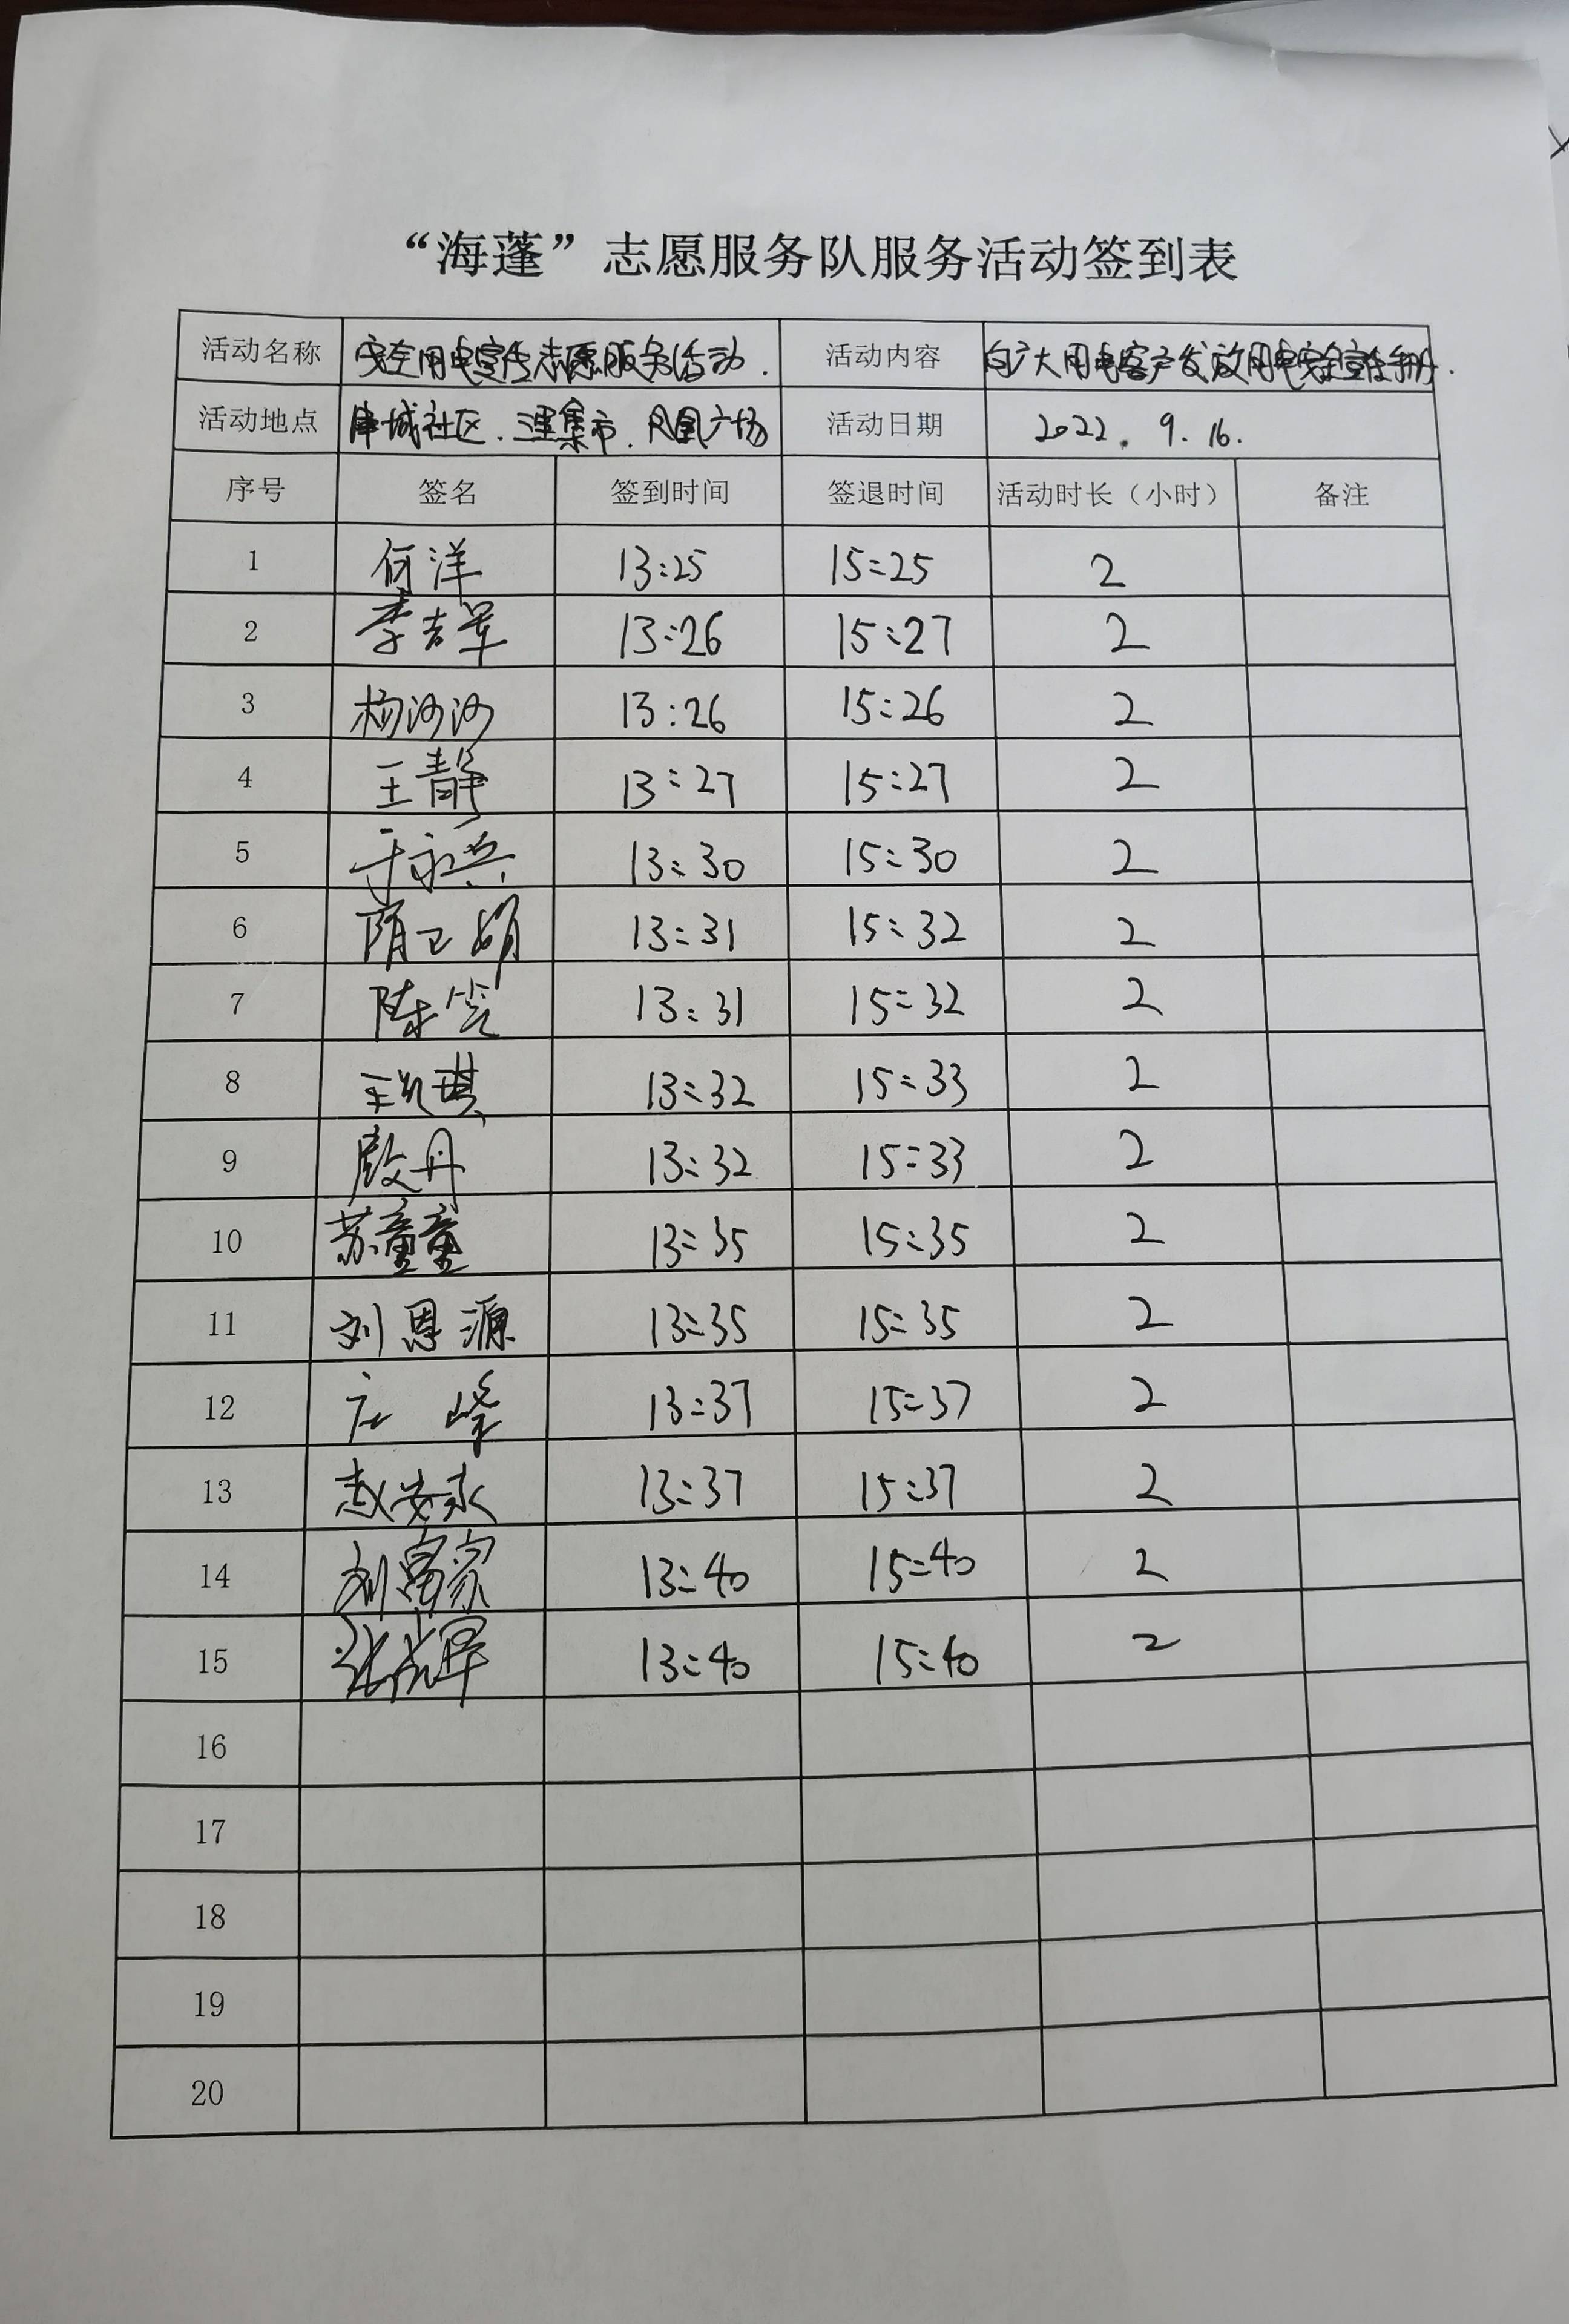 “海蓬”志愿服务队服务活动签到表
活动名称 安全用电宣传志愿服务活动. 活动内容 向广大用电客户发放用电安全宣传手册.
活动地点 城社区. 集市. 凤凰广场 活动日期 2022. 9. 16.
序号 签名 签到时间 签退时间 活动时长（小时） 备注
1 何洋 13:25 15:25 2
2 李吉军 13:26 15:27 2
3 杨沙沙 13:26 15:26 2
4 王静 13:27 15:27 2
5 于永兴 13:30 15:30 2
6 隋卫娟 13:31 15:32 2
7 陈 13:31 15:32 2
8 王凯琪 13:32 15:33 2
9 殷丹 13:32 15:33 2
10 苏童童 13:35 15:35 2
11 刘恩源 13:35 15:35 2
12 庄峰 13:37 15:37 2
13 赵安永 13:37 15:37 2
14 刘富家 13:40 15:40 2
15 张 13:40 15:40 2
16
17
18
19
20